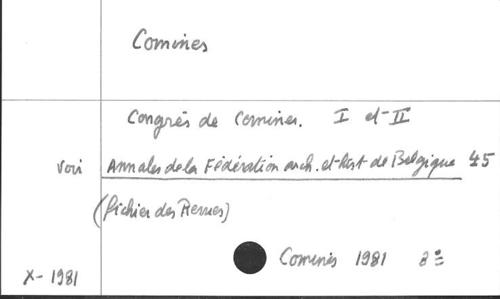 Comines
Congrès de Comines. I et II
voir Annales de la Fédération arch. et hist de Belgique 45
(fichier des Revues)
Comines 1981 8°
X-1981